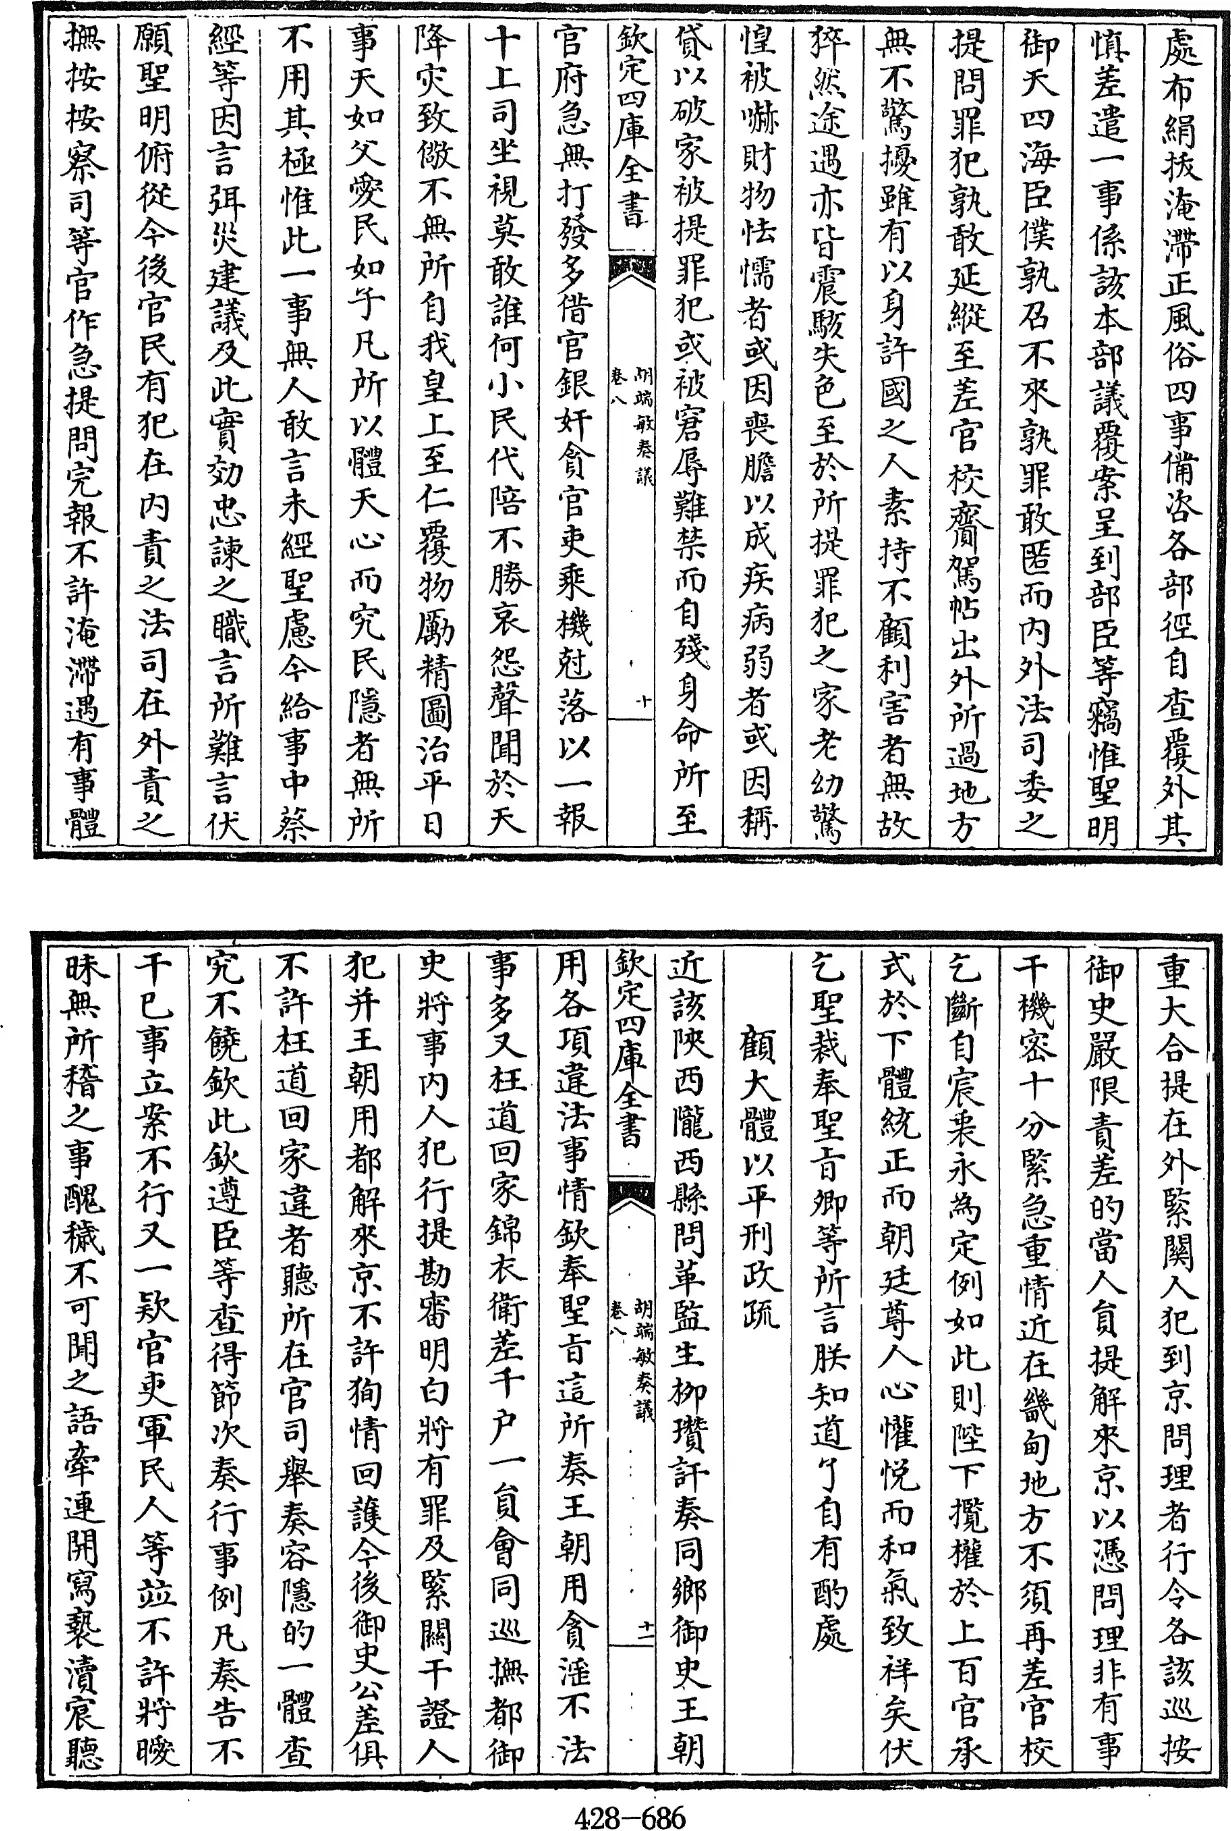 處布絹拔淹滯正風俗四事備咨各部徑自查覆外其
慎差遣一事係該本部議覆案呈到部臣等竊惟聖明
御天四海臣僕孰召不來孰罪敢匿而内外法司委之
提問罪犯孰敢延縱至差官校齎駕帖出外所過地方
無不驚擾雖有以身許國之人素持不顧利害者無故
猝然途遇亦皆震駭失色至於所提罪犯之家老幼驚
惶被嚇財物怯懦者或因喪膽以成疾病弱者或因稱
貸以破家被提罪犯或被窘辱難禁而自殘身命所至
欽定四庫全書
胡端敏奏議
卷八
十
官府急無打發多借官銀奸貪官吏乘機尅落以一報
十上司坐視莫敢誰何小民代陪不勝哀怨聲聞於天
降灾致儆不無所自我皇上至仁覆物勵精圖治平日
事天如父愛民如子凡所以體天心而究民隱者無所
不用其極惟此一事無人敢言未經聖慮今給事中蔡
經等因言弭災建議及此實効忠諫之職言所難言伏
願聖明俯從今後官民有犯在内責之法司在外責之
撫按按察司等官作急提問完報不許淹滯遇有事體
重大合提在外緊關人犯到京問理者行令各該巡按
御史嚴限責差的當人員提解來京以憑問理非有事
干機密十分緊急重情近在畿甸地方不須再差官校
乞斷自宸衷永為定例如此則陛下攬權於上百官承
式於下體統正而朝廷尊人心懽悦而和氣致祥矣伏
乞聖裁奉聖旨卿等所言朕知道了自有酌處
顧大體以平刑政疏
近該陝西隴西縣問革監生柳瓚訐奏同鄉御史王朝
欽定四庫全書
胡端敏奏議
卷八
十一
用各項違法事情欽奉聖旨這所奏王朝用貪淫不法
事多又枉道回家錦衣衛差千户一員會同巡撫都御
史將事内人犯行提勘審明白將有罪及緊關干證人
犯并王朝用都解來京不許狥情回護今後御史公差俱
不許枉道回家違者聽所在官司舉奏容隱的一體查
究不饒欽此欽遵臣等查得節次奏行事例凡奏告不
干已事立案不行又一欵官吏軍民人等竝不許將曖
昧無所稽之事醜穢不可聞之語牽連開寫褻瀆宸聽
428-686